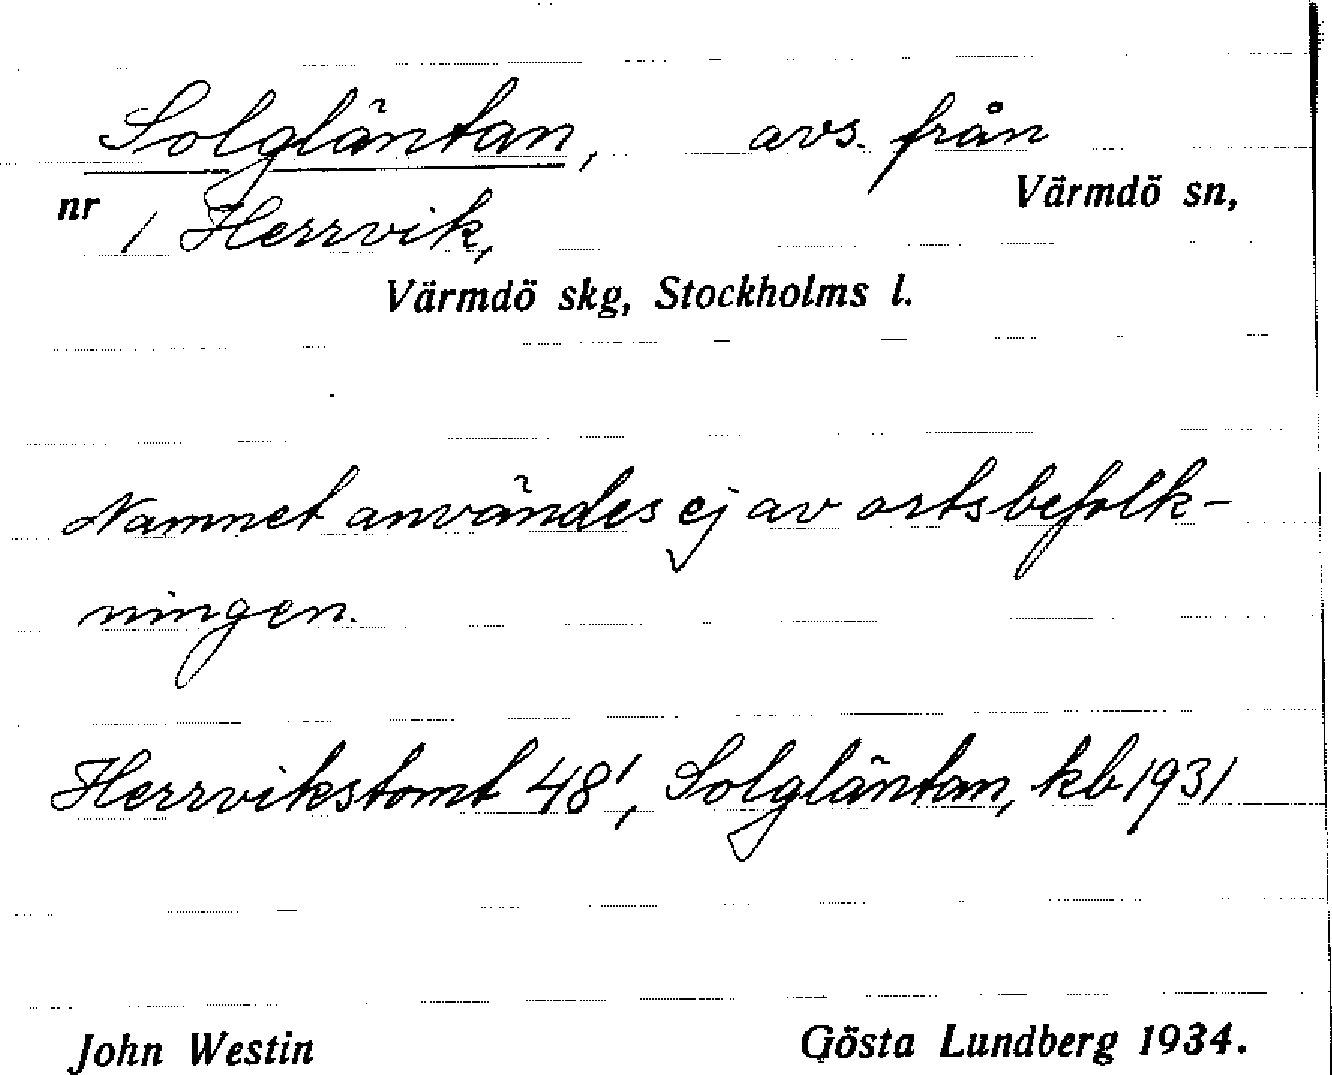 Solgläntan, avs. från
nr 1 Herrvik, Värmdö sn,
Värmdö skg, Stockholms l.
Namnet användes ej av ortsbefolk-
ningen.
Herrvikstomt 48', Solgläntan, kb 1931
John Westin Gösta Lundberg 1934.